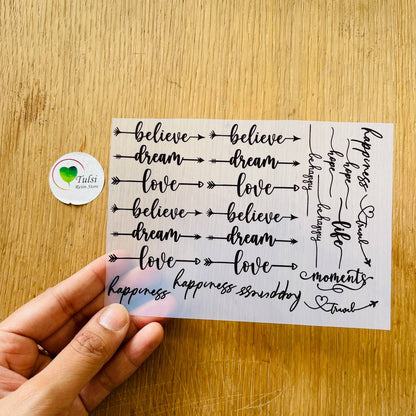 Tulsi
Resin Store
believe believe
dream dream
love love
believe believe
dream dream
love love
happiness happiness happiness
happiness
hope
hope
be happy
be happy
life
travel
moments
travel